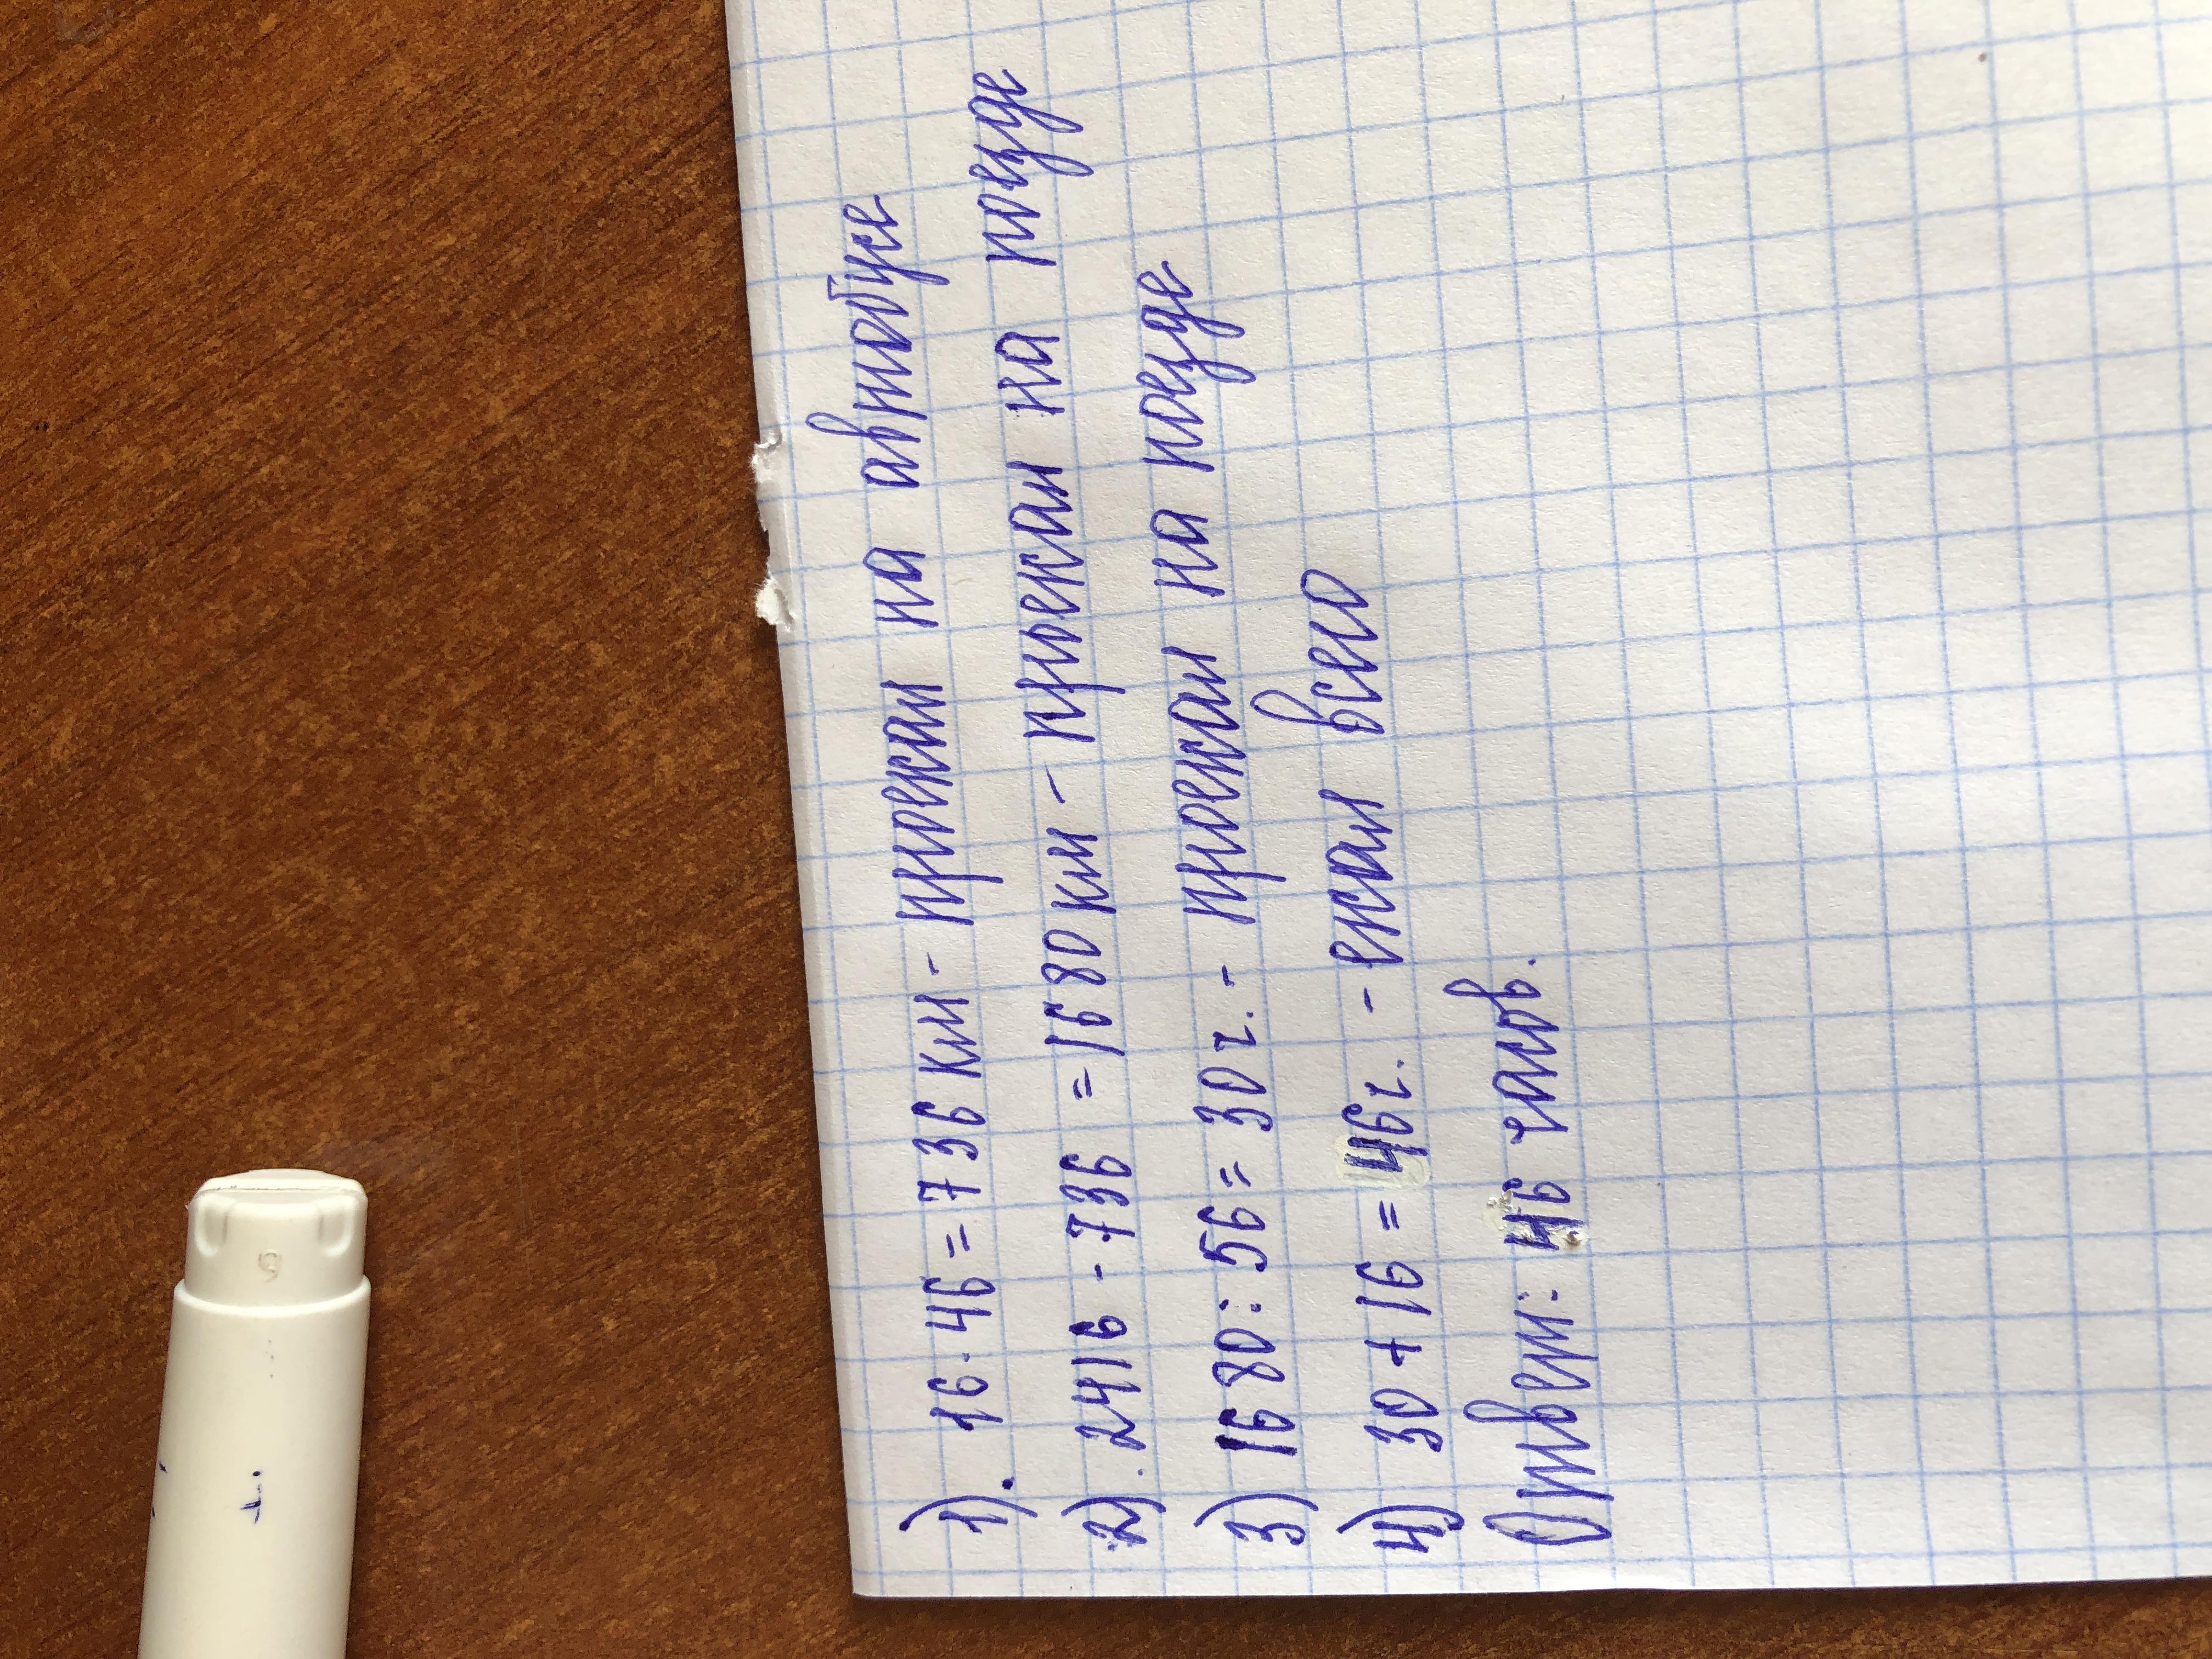 1). 16·46=736 км- проехал на автобусе
2). 2416-736 =1680 км - проехал на поезде
3) 1680:56=30 ч.- проехал на поезде
4) 30+16=46ч. -ехал всего
Ответ: 46 часов.